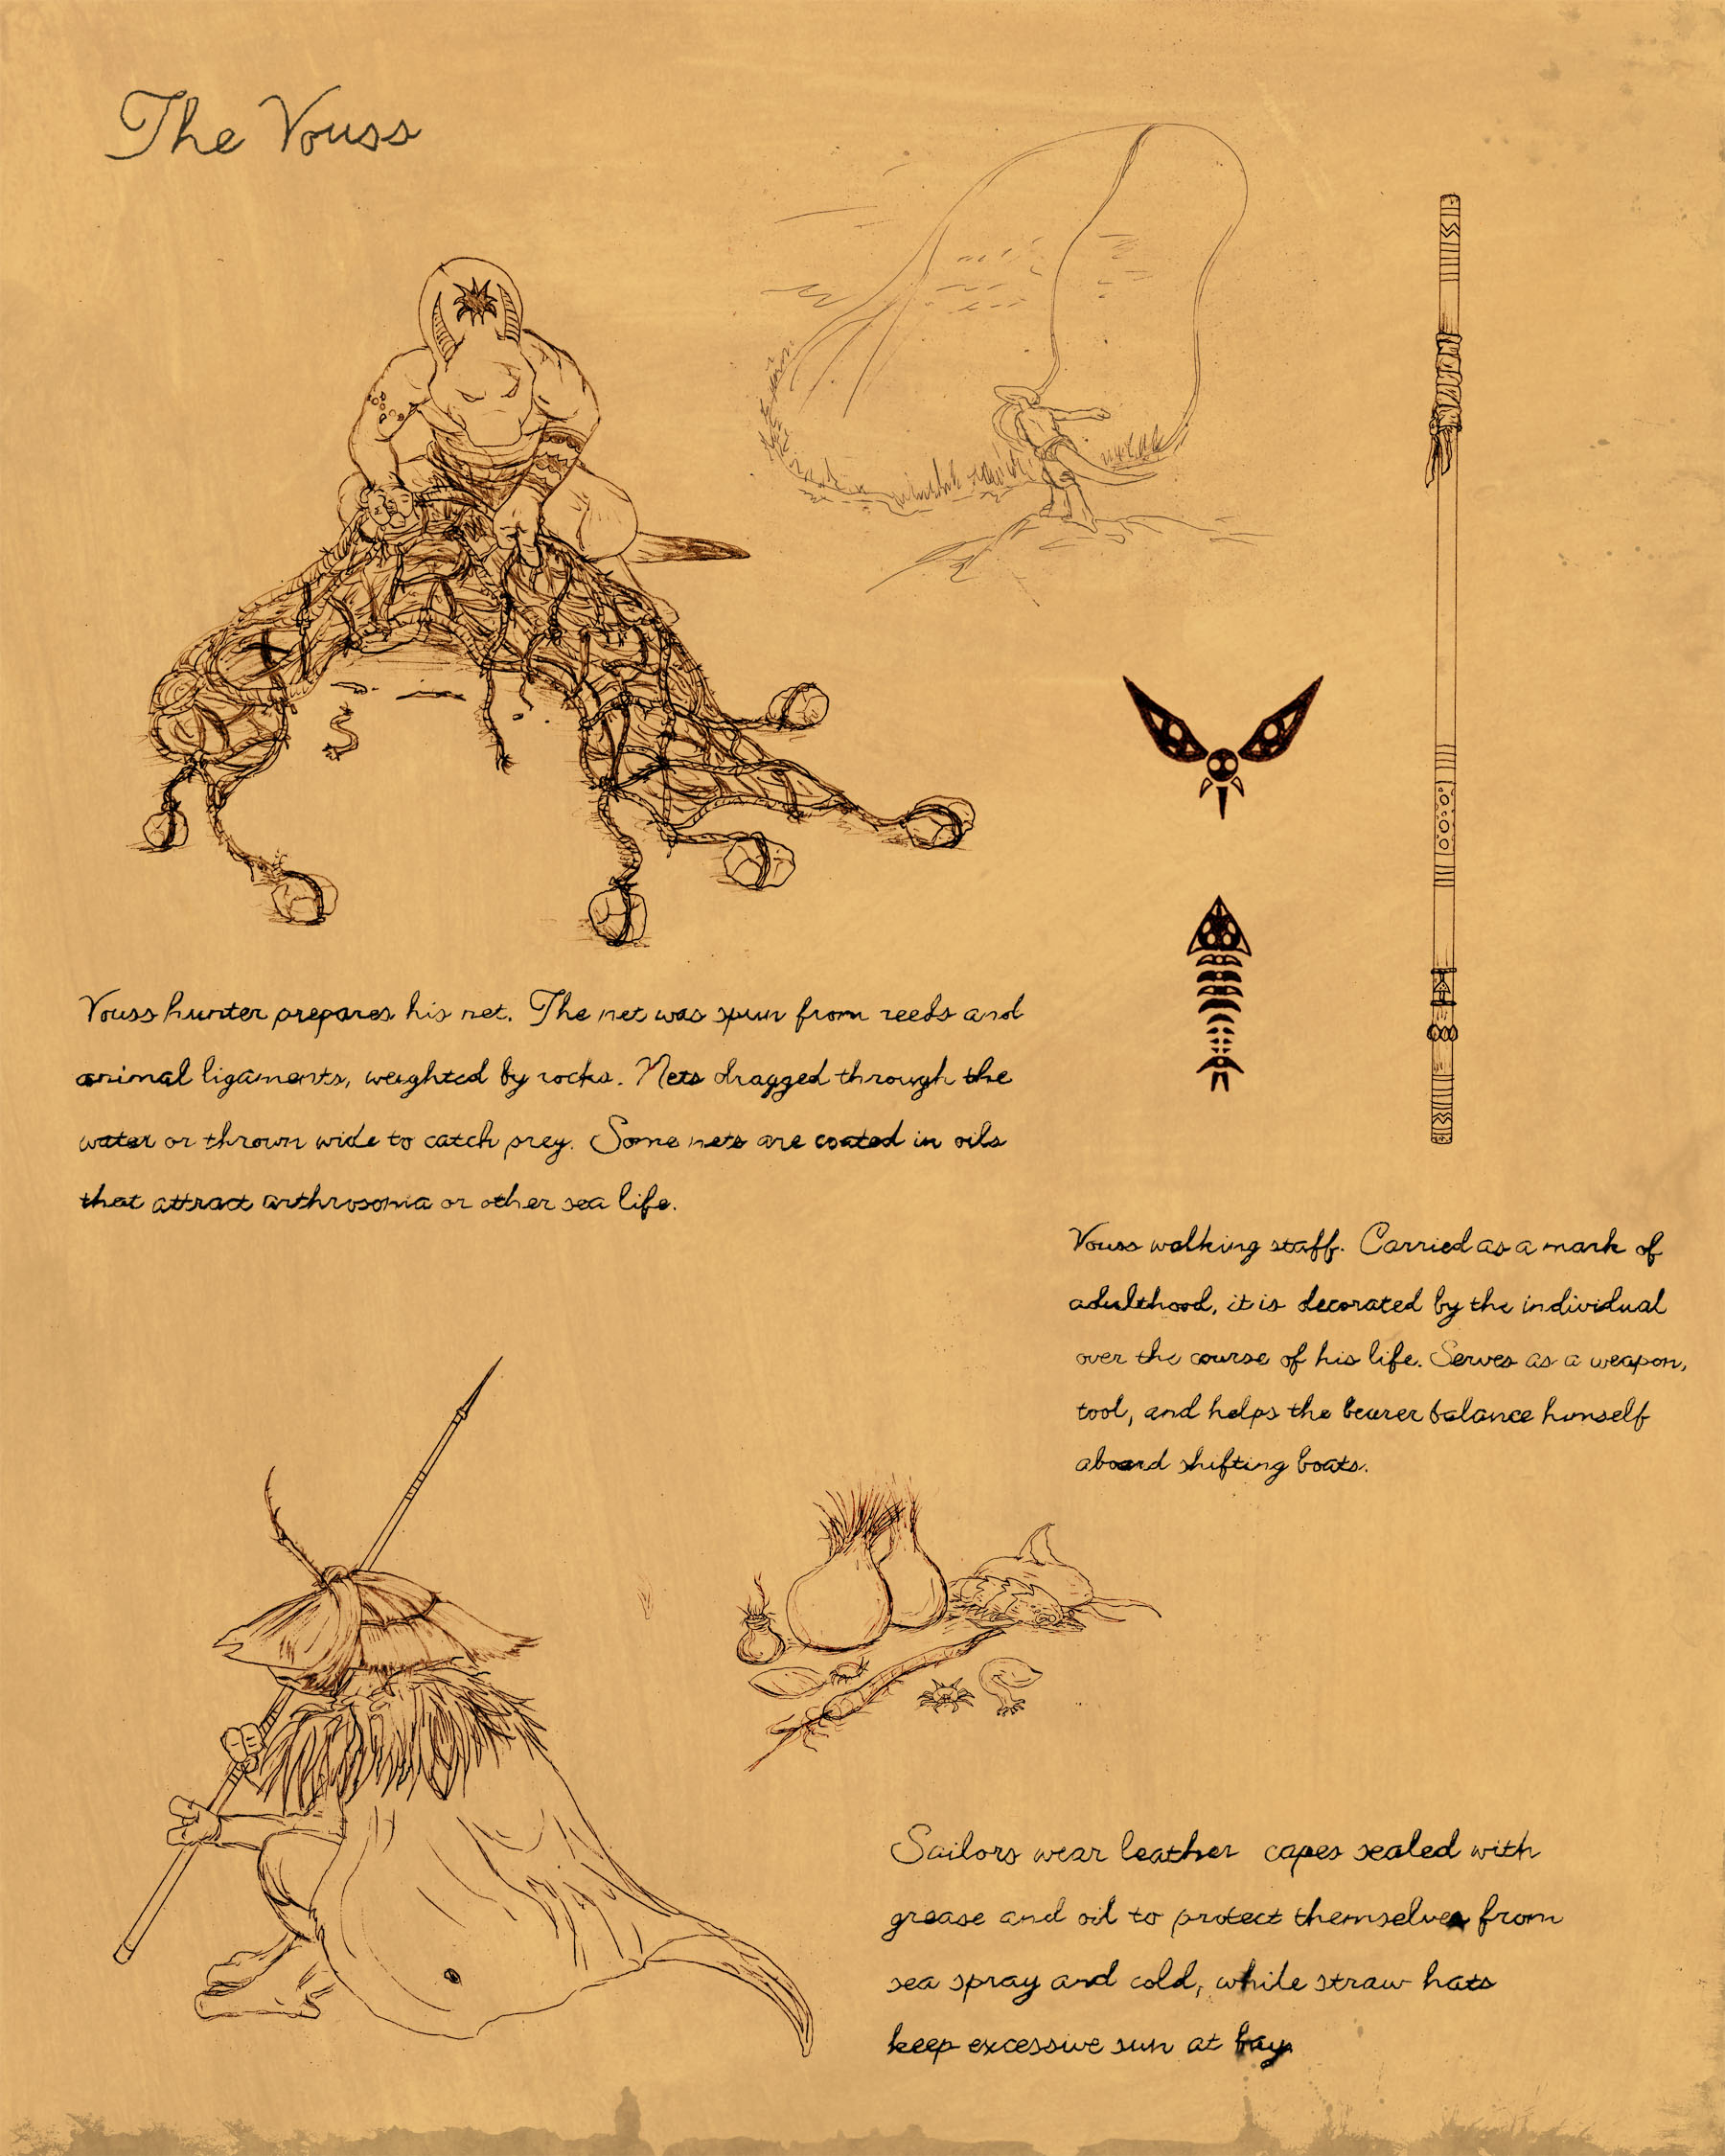 The Vouss
Vouss hunter prepares his net. The net was spun from reeds and
animal ligaments, weighted by rocks. Nets dragged through the
water or thrown wide to catch prey. Some nets are coated in oils
that attract arthrosoma or other sea life.
Vouss walking staff. Carried as a mark of
adulthood, it is decorated by the individual
over the course of his life. Serves as a weapon,
tool, and helps the bearer balance himself
aboard shifting boats.
Sailors wear leather capes sealed with
grease and oil to protect themselves from
sea spray and cold, while straw hats
keep excessive sun at bay.